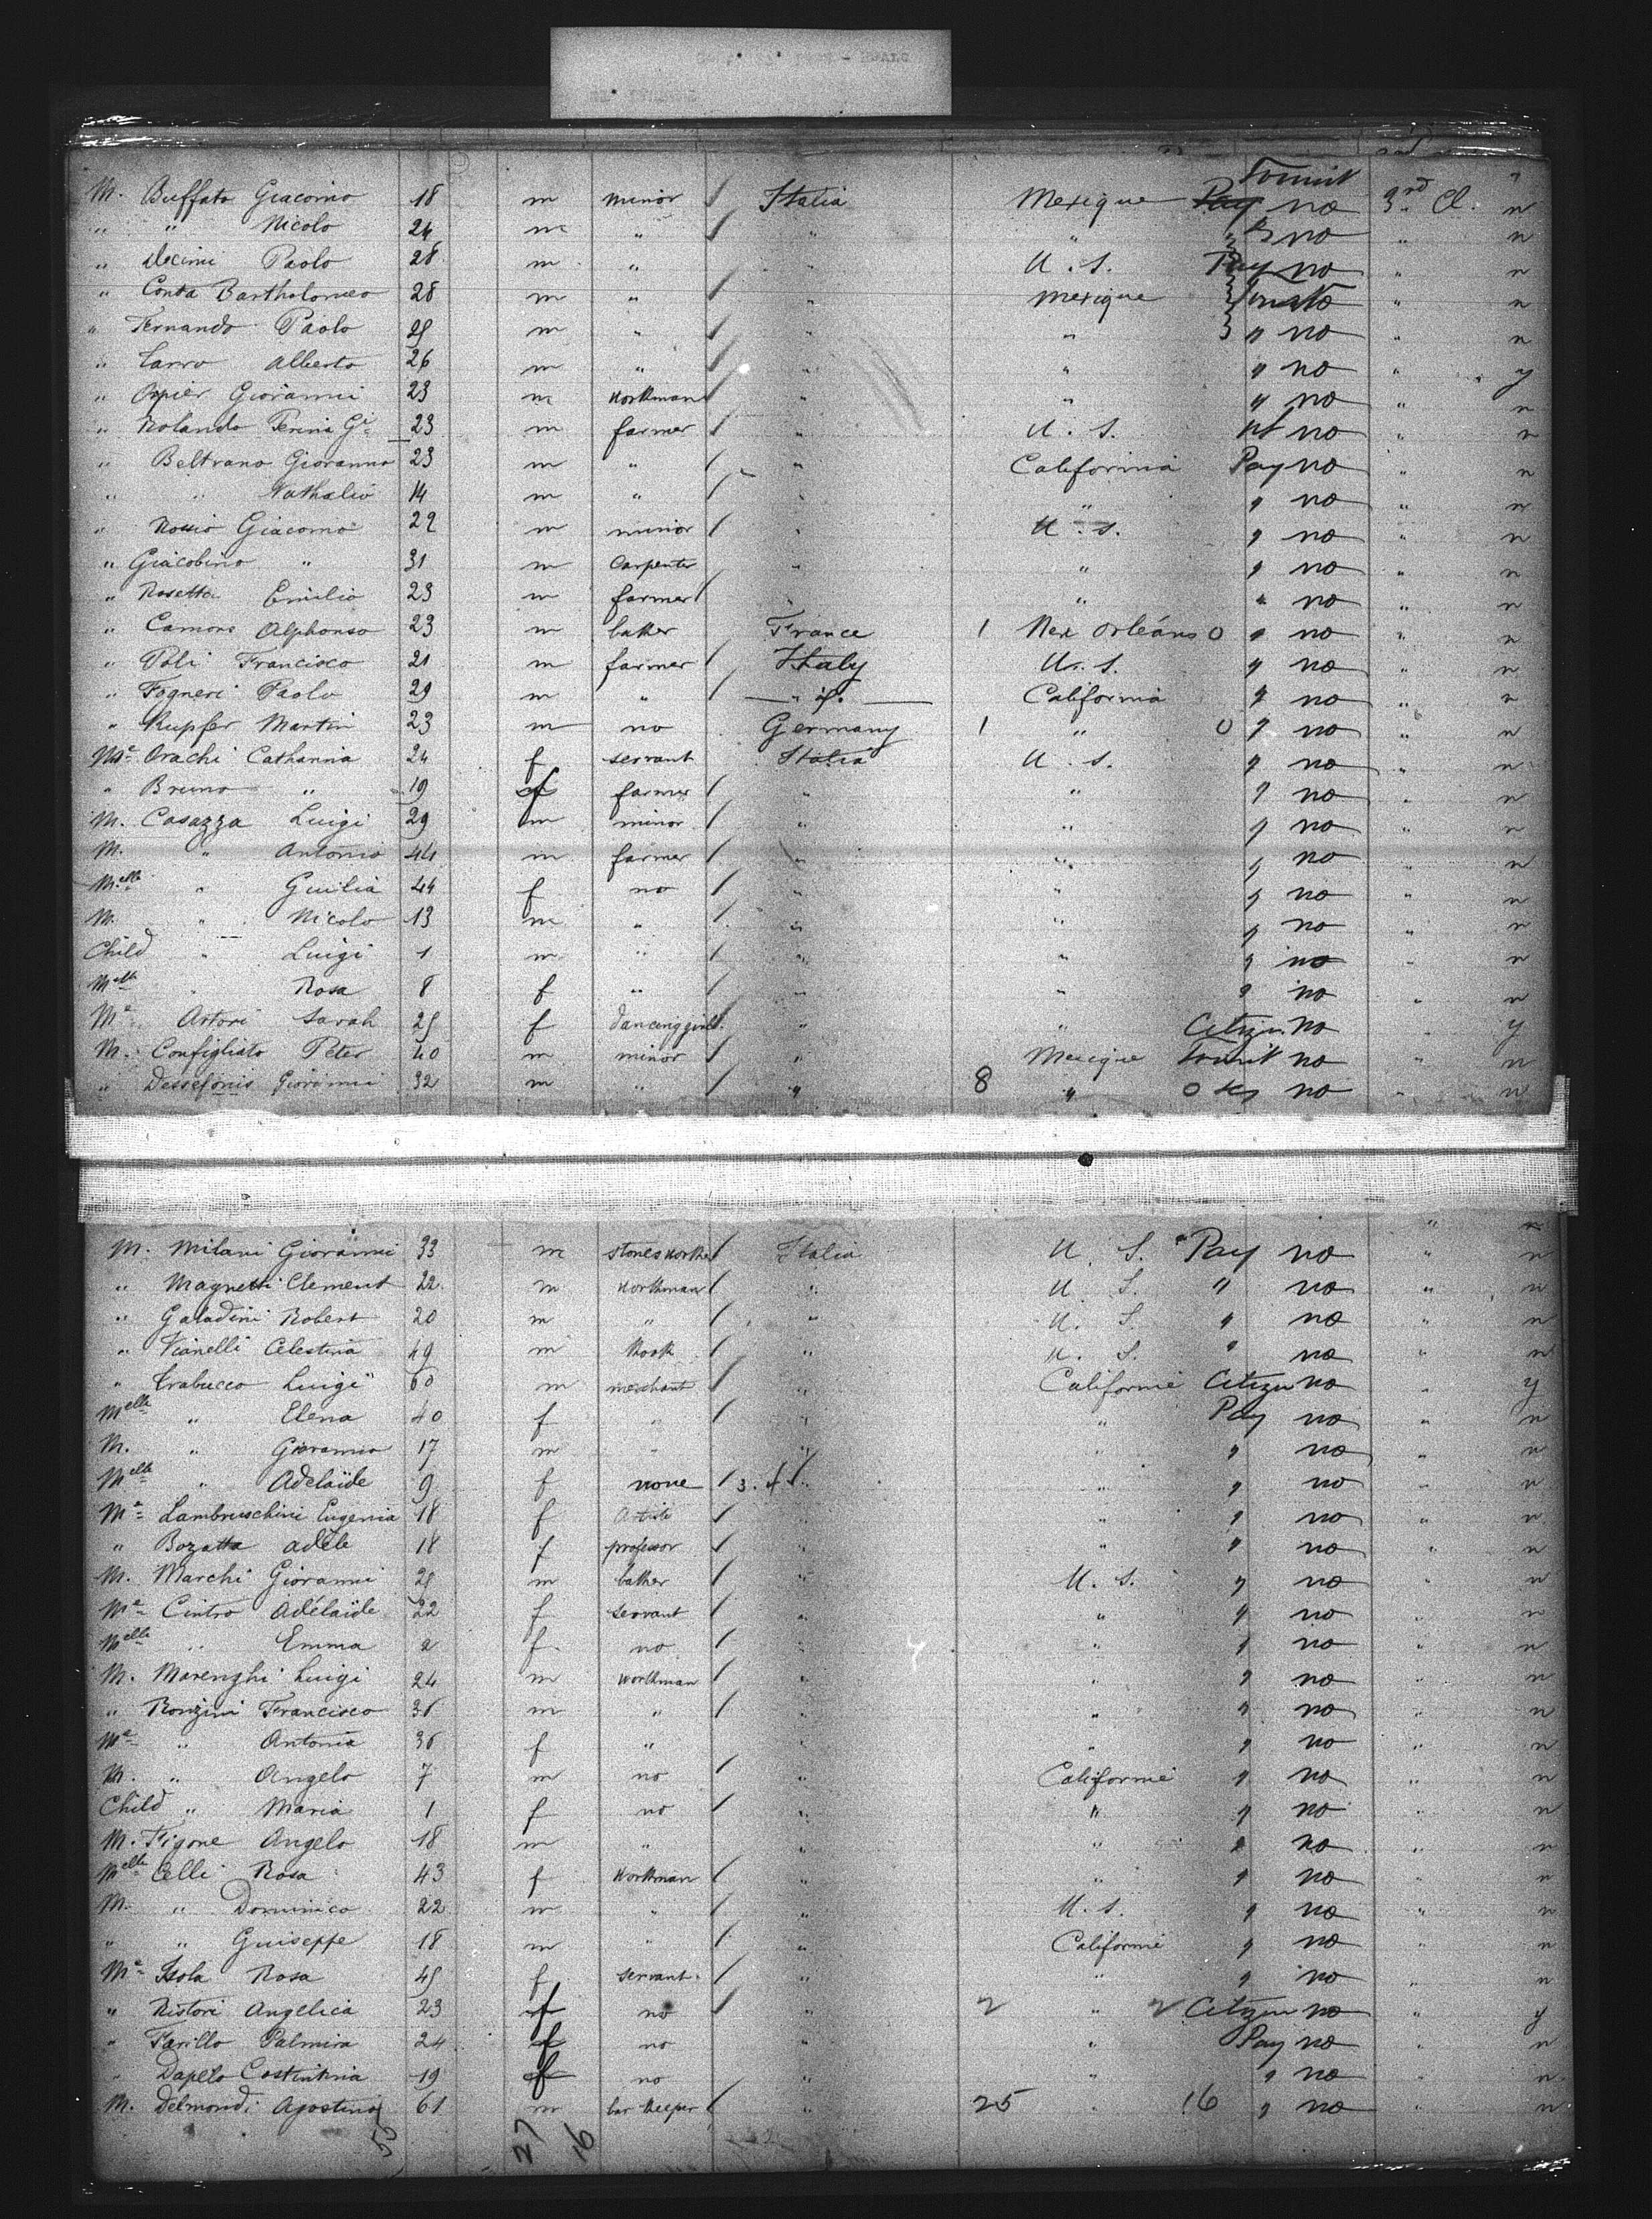 M. Buffato Giacomo 18 m minor / Italia Mexique Pay Tourist no 3rd Cl. n
" " Nicolo 24 m " / " " " no " n
" Decimi Paolo 28 m " " U. S. Pay no " n
" Conta Bartholomeo 28 m " / " Mexique no " n
" Fernando Paolo 25 m " / " " " no " n
" Alberto 26 m " / " " " no " y
" Giovanni 23 m workman / " " " no " n
" Rolando 23 m farmer / " U. S. no " n
" Beltrano Giovanno 23 m " / " California Pay no " n
" " Nathalio 14 m " / " " " no " n
" Giacomo 22 m minor / " U. S. " no " n
" Giacobino " 31 m Carpenter " " " no " n
" Rosetta Emilio 23 m farmer / " " " no " n
" Camors Alphonso 23 m baker France 1 New Orléans 0 " no " n
" Poli Francisco 21 m farmer / Italy U. S. " no " n
" Fogneri Paolo 29 m " / — " — California " no " n
" Kupfer Martin 23 m no Germany 1 " 0 " no " n
Me Orachi Catharina 24 f servant Italia U. S. " no " n
" Bruno " 19 f farmer / " " " no " n
M. Casazza Luigi 29 m minor / " " " no " n
M. " Antonio 44 m farmer / " " " no " n
Melle " Guilia 44 f no / " " " no " n
M. " Nicolo 13 m " / " " " no " n
Child " Luigi 1 m " / " " " no " n
Melle " Rosa 8 f " / " " " no " n
Me Astori Sarah 25 f dancing girl / " " Citizen no " y
M. Configliato Peter 40 m minor / " Mexique Tourist no " n
" 32 m " / " 8 " 0 no " n
M. Milani Giovanni 33 m stonesworker / Italia U. S. Pay no " n
" Magnetti Clement 22 m workman / " U. S. " no " n
" Galadini Robert 20 m " / " U. S. " no " n
" Vianelli Celestina 49 m Kook / " U. S. " no " n
" Trabucco Luigi 60 m merchant / " Californie Citizen no " y
Melle " Elena 40 f " / " " Pay no " n
M. " Giovanno 17 m " " " " no " n
Melle " Adelaïde 9 f none / " " " no " n
Me Lambruschini Eugenia 18 f Artiste / " " " no " n
" Bozatta adèle 18 f professor / " " " no " n
M. Marchi Giovanni 25 m baker / " U. S. " no " n
Me Cintro Adélaïde 22 f servant / " " " no " n
Melle " Emma 2 f no / " " " no " n
M. Marenghi Luigi 24 m workman " " " no " n
" Ronzini Francisco 36 m " / " " " no " n
Me " Antonia 36 f " " " " no " n
M. " Angelo 7 m no / " Californie " no " n
Child " Maria 1 f no / " " " no " n
M. Figone Angelo 18 m " " " " no " n
Melle Celli Rosa 43 f Workman / " " " no " n
M. " Dominico 22 m " / " U. S. " no " n
" " Guiseppe 18 m " / " Californie " no " n
Me Isola Rosa 45 f servant / " " " no " n
" Ristori Angelica 23 f no / " 2 " 2 Citizen no " y
" Farillo Palmira 24 f no " " Pay no " n
" Dapelo Costintina 19 f no " " " no " n
M. Delmondi Agostino 61 m bar Keeper / " 25 " 16 " no " n
53 27 16